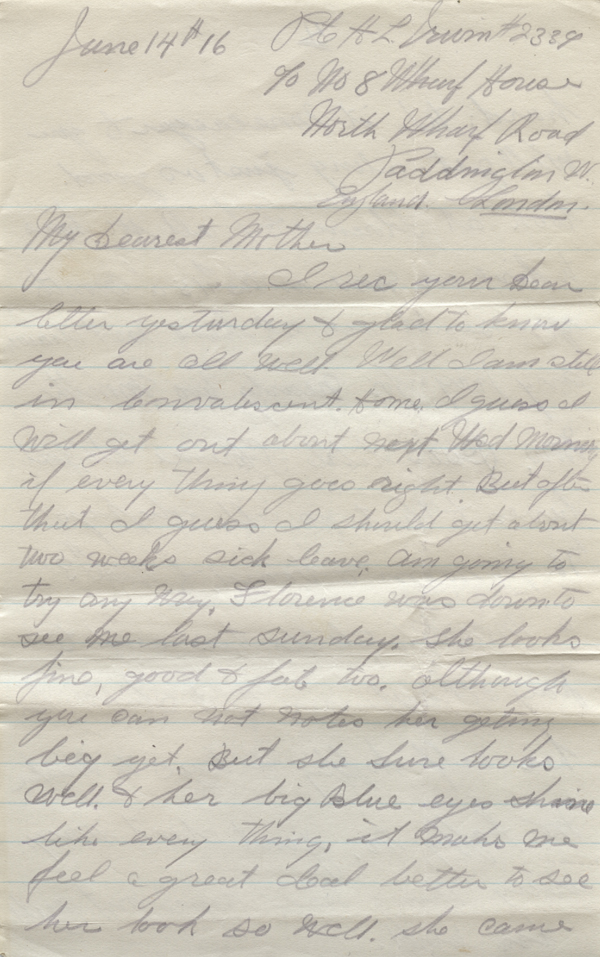 June 14th 16 Pte H L Irwin # 2339
c/o No 8 Wharf House
North Wharf Road
Paddington W.
England. London.
My Dearest Mother
I rec your Dear
letter yesturday & glad to know
you are all well. Well I am still
in Convalescent. Home, I guess I
will get out about next Wed Morning
if every thing goes right. But after
that I guess I should get about
two weeks sick leave, am going to
try any way. Florence was down to
see me last sunday. she looks
fine, good & fat too. although
you can not notes her geting
big yet. But she sure looks
well. & her big Blue eyes shine
like every thing, it make me
feel a great deal better to see
her look so well. she came